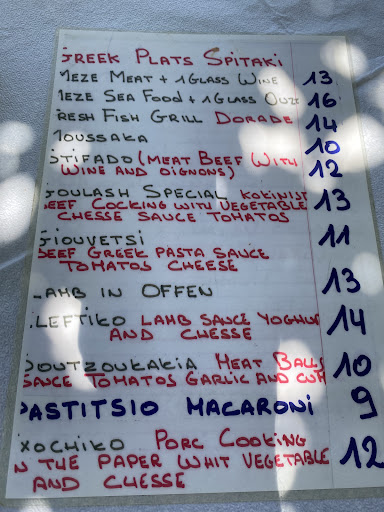 GREEK PLATS SPITAKI
MEZE MEAT + 1 GLASS WINE 13
MEZE SEA FOOD + 1 GLASS OUZO 16
FRESH FISH GRILL DORADE 14
MOUSSAKA 10
STIFADO (MEAT BEEF WITH 12
WINE AND OIGNONS)
GOULASH SPECIAL KOKINIST 13
BEEF COCKING WITH VEGETABLE
CHESSE SAUCE TOMATOS
GIOUVETSI 11
BEEF GREEK PASTA SAUCE
TOMATOS CHEESE
LAMB IN OFFEN 13
KLEFTIKO LAMB SAUCE YOGHU 14
AND CHESSE
SOUTZOUKAKIA MEAT BALLS 10
SAUCE TOMATOS GARLIC AND CUM
PASTITSIO MACARONI 9
EXOCHIKO PORC COOKING 12
IN THE PAPER WHIT VEGETABLE
AND CHESSE